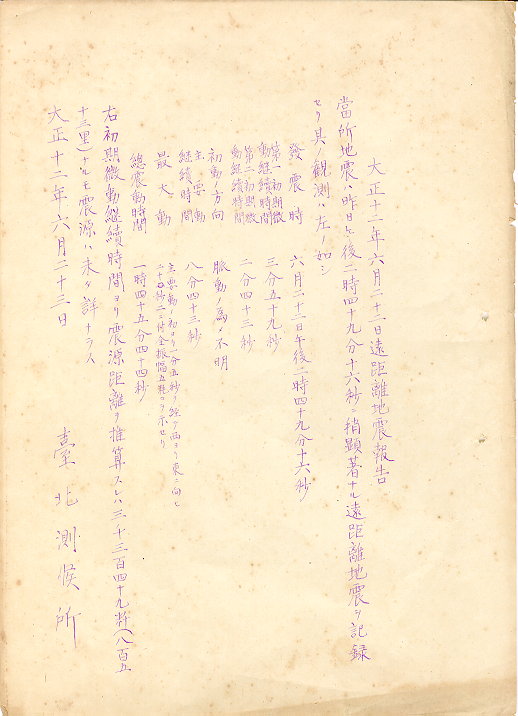 大正十二年六月二十二日遠距離地震報告
當所地震ハ昨日午後二時四十九分十六秒ニ稍顯著ナル遠距離地震ヲ記録
セリ其ノ観測ハ左ノ如シ
發震時 六月二十二日午後二時四十九分十六秒
第一初期微動継續時間 三分五十九秒
第二初期微動継續時間 二分四十三秒
初動ノ方向 脈動ノ為メ不明
主要動継續時間 八分四十三秒
最大動 主要動ノ初ヨリ一分五秒ヲ経テ西ヨリ東ニ向ヒ二十秒ニ付全振幅五粍ヲ示セリ
總震動時間 一時四十五分四十四秒
右初期微動継續時間ヨリ震源距離ヲ推算スレハ三千三百四十九粁(八百五
十三里)ナルモ震源ハ未タ詳ナラス
大正十二年六月二十三日
臺北測候所